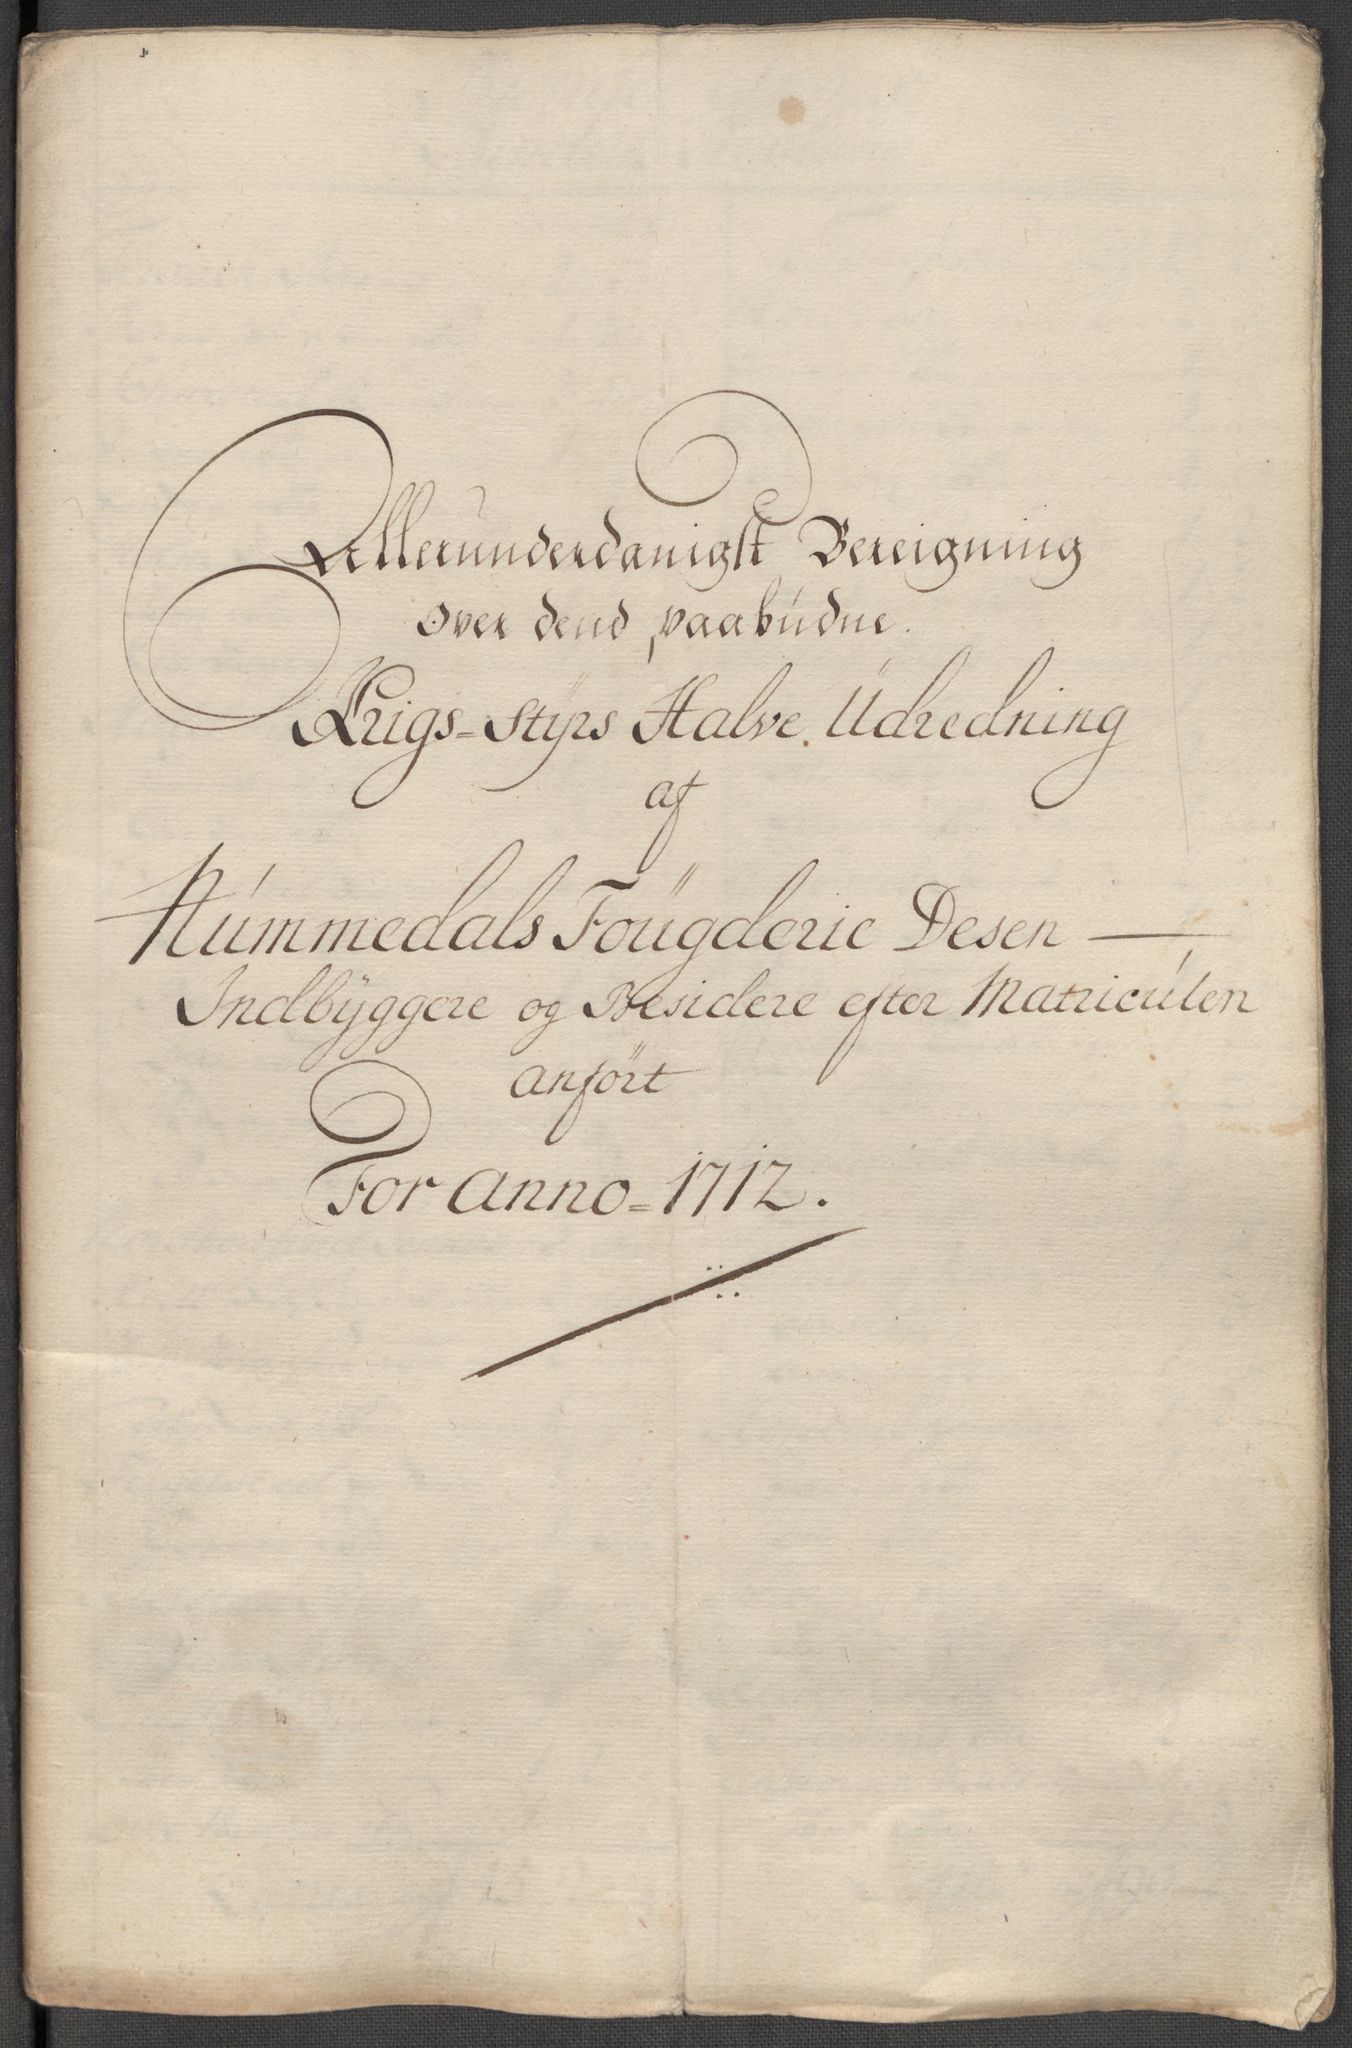 Allerunderdanigst Bereigning
over dend paabudne
Krigs-Styrs Halve Udredning
af
Nummedals Fougderie Desen
Indbÿggere og Besidere efter Matriculen
anført
For Anno = 1712.